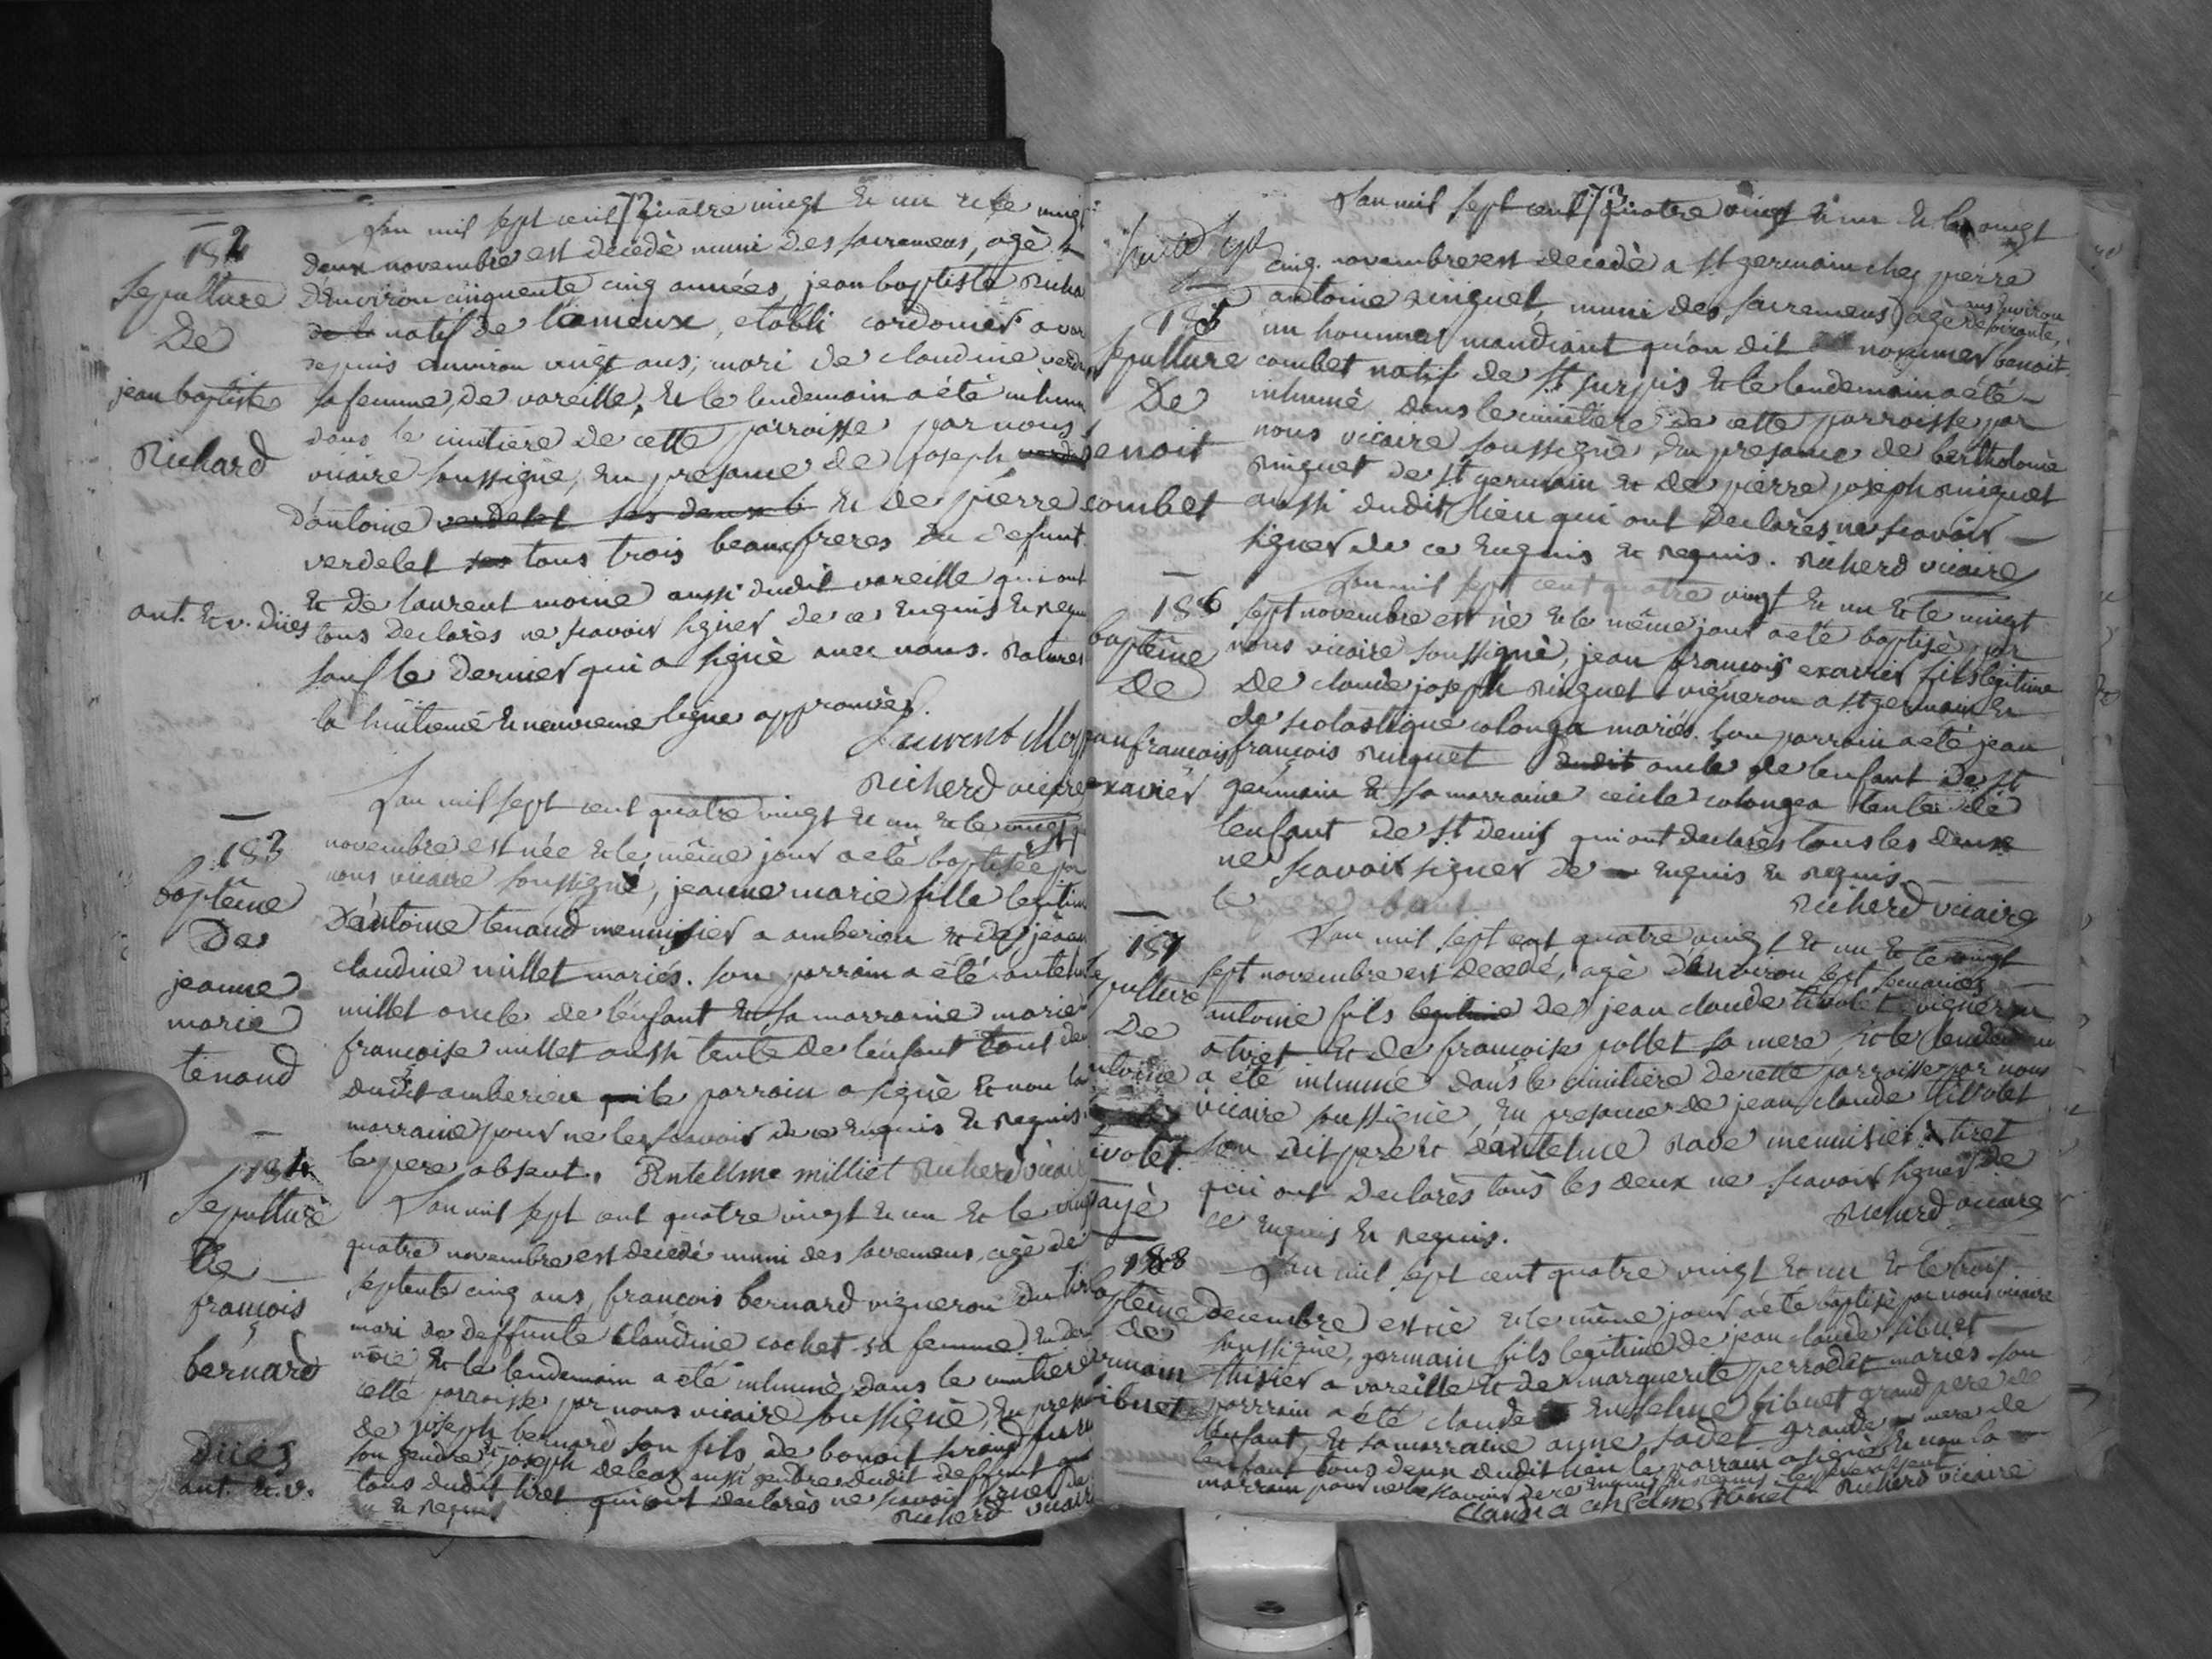 182
Sepulture
De
jean baptiste
Richard
ant. & v. Dües
73
L'an mil sept cent quatre vingt & un & le vingt
deux novembre est décédè muni des sacremens, agè
D'environ cinquente cinq années, jean baptiste Richa
natif de établi cordonier a var
depuis environ vingt ans, mari de claudine verde
sa femme, de vareille, & le lendemain a été inhum
dans le cimitiere de cette parroisse par nous
vicaire soussigné, en presance de joseph
D'antoine verdelet & de pierre
verdelet tous trois beaux freres du defunt
& de laurent moine aussi dudit vareille qui ont
tous Declarès ne scavoir signer de ce enquis & requ
sauf le dernier qui a signè avec nous. Ratures
la huitieme & neuvieme ligne approuvèes.
Laurent Moy
Richerd vicaire
183
baptême
De
jeanne
marie
tenand
L'an mil sept cent quatre vingt & un & le vingt
novembre est née & le même jour a etè baptisée par
nous vicaire soussigné, jeanne marie fille legitim
D'antoine tenand mennisier a amberieu & de jeann
claudine millet mariés. son parrain a été antelm
millet oncle de l'enfant & sa marraine marie
françoise millet aussi tente de l'enfant tous deu
dudit amberieu le parrain a signè & non la
marraine pour ne le scavoir de ce enquis & requis.
le pere absent. Antellme milliet Richerd vicair
184
Sepulture
De
françois
bernard
Dües
ant. & v.
L'an mil sept cent quatre vingt & un & le vingt
quatre novembre est decedé muni des sacremens, agè de
septente cinq ans, françois bernard vigneron du tiret
mari de deffunte claudine cochet sa femme
& le lendemain a été inhumè dans le cimitiere
cette parroisse par nous vicaire soussigné, en presan
de joseph bernard son fils, de benoit
son gendre & joseph deleaz aussi gendre dudit deffunt qui
tous dudit tiret qui ont declarès ne scavoir signer de
ce & requis
Richerd vicair
73
L'an mil sept cent quatre vingt & un & le vingt
cinq novembre est decedè a st germain chez pierre
antoine ringuet, muni des sacremens, agè de
ans environ
un homme mandiant qu'on dit nommer benoit
combet natif de st surpis & le lendemain a été
inhumè dans le cimitiere de cette parroisse par
nous vicaire soussignè, en presance de bertholomè
ringuet de st germain & de pierre joseph ringuet
aussi dudit lieu qui ont declarès ne scavoir
signer de ce enquis & requis. Richerd vicaire
185
Sepulture
De
benoit
combet
186
baptême
De
jean françois
exavier
L'an mil sept cent quatre vingt & un & le vingt
sept novembre est nè & le même jour a etè baptisè par
nous vicaire soussignè, jean françois exavier fils legitime
De claude joseph ringuet vigneron a st germain &
de scolastique colonga mariés. son parrain a etè jean
françois ringuet oncle de l'enfant de st
germain & sa marraine cecile colonga tente de
l'enfant de st denis qui ont declarès tous les deux
ne scavoir signer de enquis & requis
Richerd vicaire
187
Sepulture
De
antoine
tivolet
payè
L'an mil sept cent quatre vingt & un & le vingt
sept novembre est decedé, agè d'environ sept semaines
antoine fils de jean claude tivolet vigneron
a tiret & de françoise pollet sa mere, & le lendemain
a été inhumé dans le cimitiere de cette parroisse par nous
vicaire soussigné, en presance de jean claude tivolet
son dit pere & d'antelme rave mennisier a tiret
qui ont declarès tous les deux ne scavoir signer de
ce enquis & requis.
Richerd vicaire
188
baptême
de
germain
sibuet
L'an mil sept cent quatre vingt & un & le trois
decembre est nè & le même jour a été baptisè par nous vicaire
soussigné, germain fils legitime de jean claude sibuet
tisier a vareille & de marguerite perrodet mariés. son
parrain a été claude enthelme sibuet grand pere de
l'enfant, & sa marraine anne sadet grande mere de
l'enfant tous deux dudit lieu le parrain a signé & non la
marraine pour ne le scavoir de ce enquis & requis le pere absent
Claude a anselme Sibuet Richerd vicaire